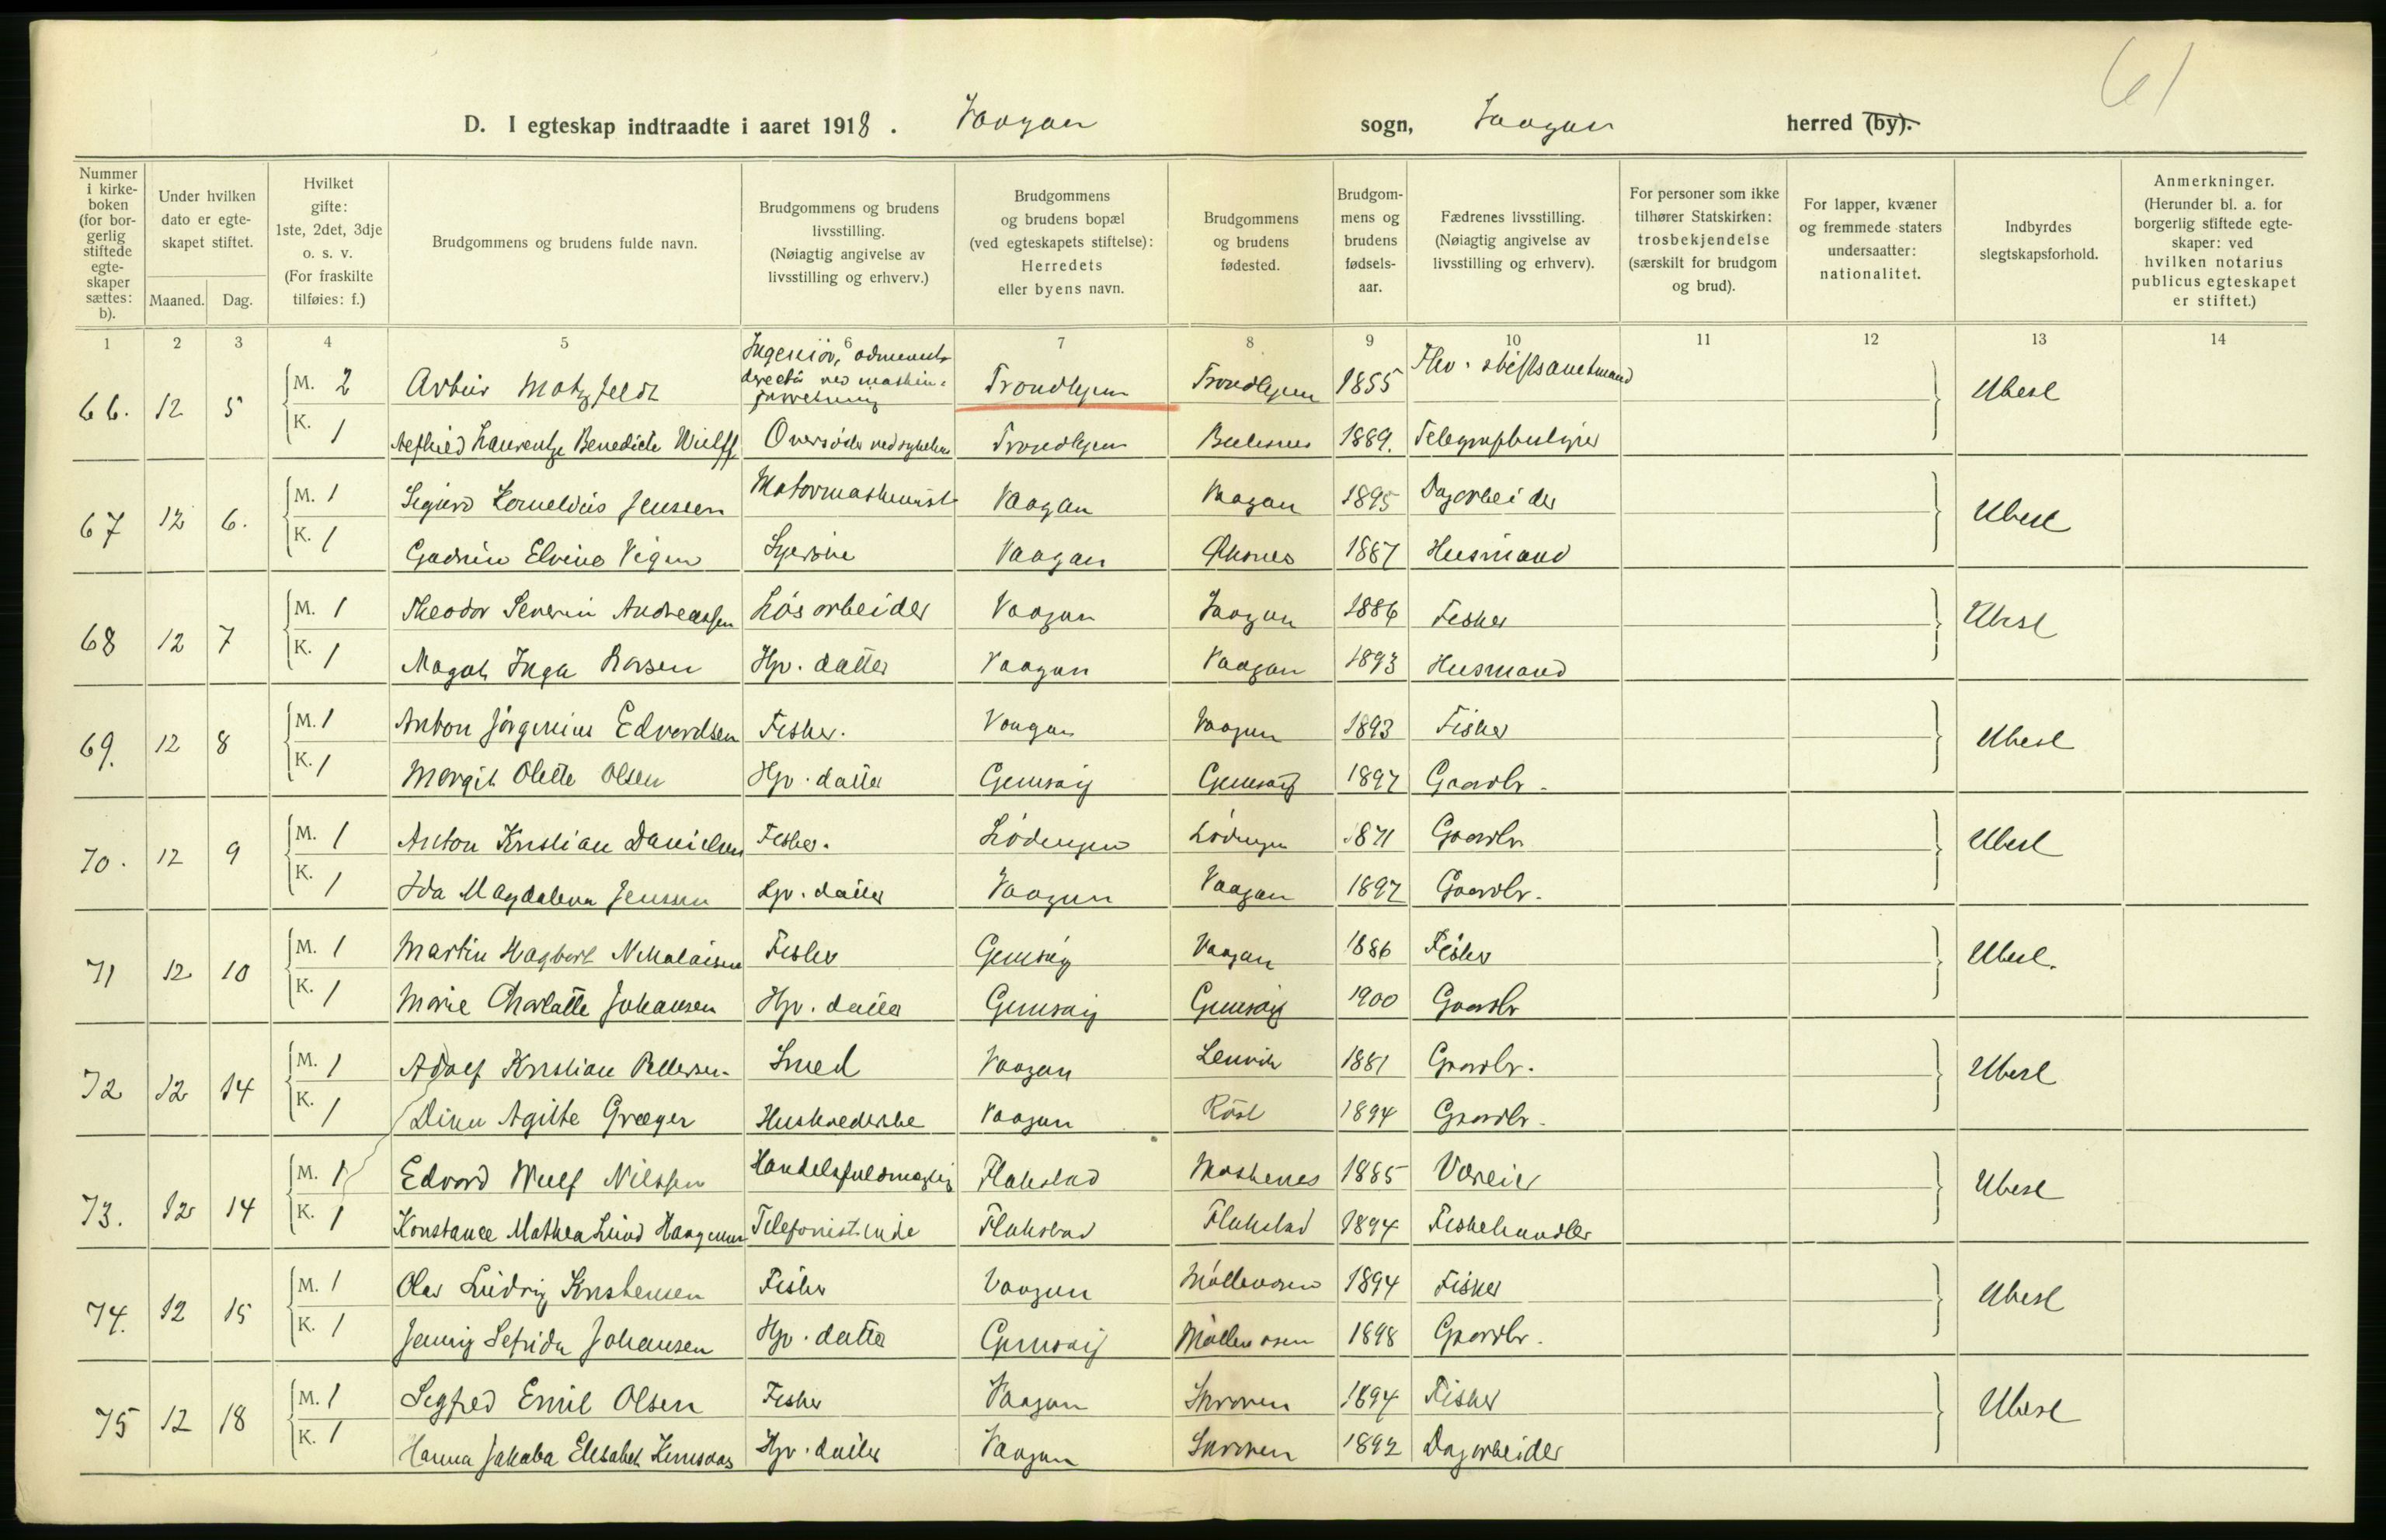 61
D. I egteskap indtraadte i aaret 1918. Vaagan sogn, Vaagan herred (by).
Nummer i kirkeboken (for borgerlig stiftede egteskaper sættes: b).
Under hvilken dato er egteskapet stiftet.
Maaned. Dag.
Hvilket gifte: 1ste, 2det, 3dje o. s. v. (For fraskilte tilføies: f.)
Brudgommens og brudens fulde navn.
Brudgommens og brudens livsstilling. (Nøiagtig angivelse av livsstilling og erhverv.)
Brudgommens og brudens bopæl (ved egteskapets stiftelse): Herredets eller byens navn.
Brudgommens og brudens fødested.
Brudgommens og brudens fødselsaar.
Fædrenes livsstilling. (Nøiagtig angivelse av livsstilling og erhverv).
For personer som ikke tilhører Statskirken: trosbekjendelse (særskilt for brudgom og brud).
For lapper, kvæner og fremmede staters undersaatter: nationalitet.
Indbyrdes slegtskapsforhold.
Anmerkninger. (Herunder bl. a. for borgerlig stiftede egteskaper: ved hvilken notarius publicus egteskapet er stiftet.)
1 2 3 4 5 6 7 8 9 10 11 12 13 14
66. 12 5 M. 2 Ingeniør, Trondhjem Trondhjem 1855 Ubesl
K. 1 Laurentze Benedicte Wulff Trondhjem 1889.
67 12 6. M. 1 Sigurd Kornelius Jenssen Motormaskinist Vaagan Vaagan 1895 Dagarbeider Ubesl
K. 1 Elvine Syerske Vaagan 1887 Husmand
68 12 7 M. 1 Theodor Severin Andreassen Løsarbeider Vaagan Vaagan 1886 Fisker Ubesl
K. 1 Magot Inga Larsen Hjv. datter Vaagan Vaagan 1893 Husmand
69. 12 8 M. 1 Anton Jørginius Edvardsen Fisker. Vaagan Vaagan 1893 Fisker Ubesl
K. 1 Margit Olette Olsen Hjv. datter Gimsøy Gimsøy 1897 Gaardbr.
70. 12 9 M. 1 Anton Kristian Danielsen Fisker. Lødingen Lødingen 1871 Gaardbr Ubesl
K. 1 Ida Magdalena Jenssen Hjv. datter Vaagan Vaagan 1897 Gaardbr.
71 12 10 M. 1 Martin Hagbart Nikolaisen Fisker Gimsøy Vaagan 1886 Fisker Ubesl.
K. 1 Marie Charlotte Johansen Hjv. datter Gimsøy Gimsøy 1900 Gaardbr
72 12 14 M. 1 Adolf Kristian Pettersen Smed Vaagan Lenvik 1881 Gaardbr. Ubesl
K. 1 Dina Agitte Græger Vaagan Røst 1894 Gaardbr.
73. 12 14 M. 1 Edvard Wulf Nilssen Handelsfuldmægtig Flakstad Moskenes 1885 Væreier Ubesl
K. 1 Konstance Mathea Lund Haagensen Telefonistinde Flakstad Flakstad 1894 Fiskehandler
74. 12 15 M. 1 Olav Ludvig Kristensen Fisker Vaagan 1894 Fisker Ubesl
K. 1 Jenny Johansen Hjv. datter Gimsøy 1898 Gaardbr.
75 12 18 M. 1 Sigfred Emil Olsen Fisker Vaagan 1894 Fisker Ubesl
K. 1 Hanna Jakoba Elisabet Hjv. datter Vaagan 1892 Dagarbeider